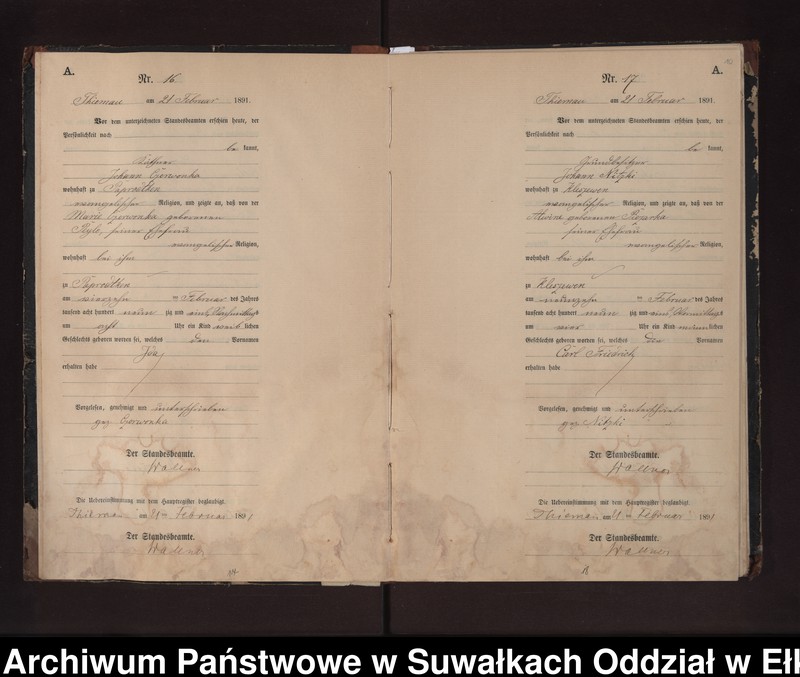 A.
Nr. 16
am 21 Februar 1891.
Vor dem unterzeichneten Standesbeamten erschien heute, der
Persönlichkeit nach
be kannt,
Johann Czerwonka
wohnhaft zu
evangelischer Religion, und zeigte an, daß von der
Marie Czerwonka geborenen
seiner Ehefrau
evangelischer Religion,
wohnhaft bei ihm
zu
am vierzehn ten Februar des Jahres
tausend acht hundert neun zig und eins, Nachmittags
um acht Uhr ein Kind weib lichen
Geschlechts geboren worden sei, welches den Vornamen
Ida
erhalten habe
Vorgelesen, genehmigt und unterschrieben
gez Czerwonka
Der Standesbeamte.
Die Uebereinstimmung mit dem Hauptregister beglaubigt.
am 21 ten Februar 1891
Der Standesbeamte.
A.
Nr. 17
am 21 Februar 1891.
Vor dem unterzeichneten Standesbeamten erschien heute, der
Persönlichkeit nach
be kannt,
Grundbesitzer
Johann Nitzki
wohnhaft zu
evangelischer Religion, und zeigte an, daß von der
geborenen
seiner Ehefrau
evangelischer Religion,
wohnhaft bei ihm
zu
am neunzehn ten Februar des Jahres
tausend acht hundert neun zig und eins,
um vier Uhr ein Kind männ lichen
Geschlechts geboren worden sei, welches die Vornamen
Carl Friedrich
erhalten habe
Vorgelesen, genehmigt und unterschrieben
gez Nitzki
Der Standesbeamte.
Die Uebereinstimmung mit dem Hauptregister beglaubigt.
am 21 ten Februar 1891
Der Standesbeamte.
Archiwum Państwowe w Suwałkach Oddział w Ełk